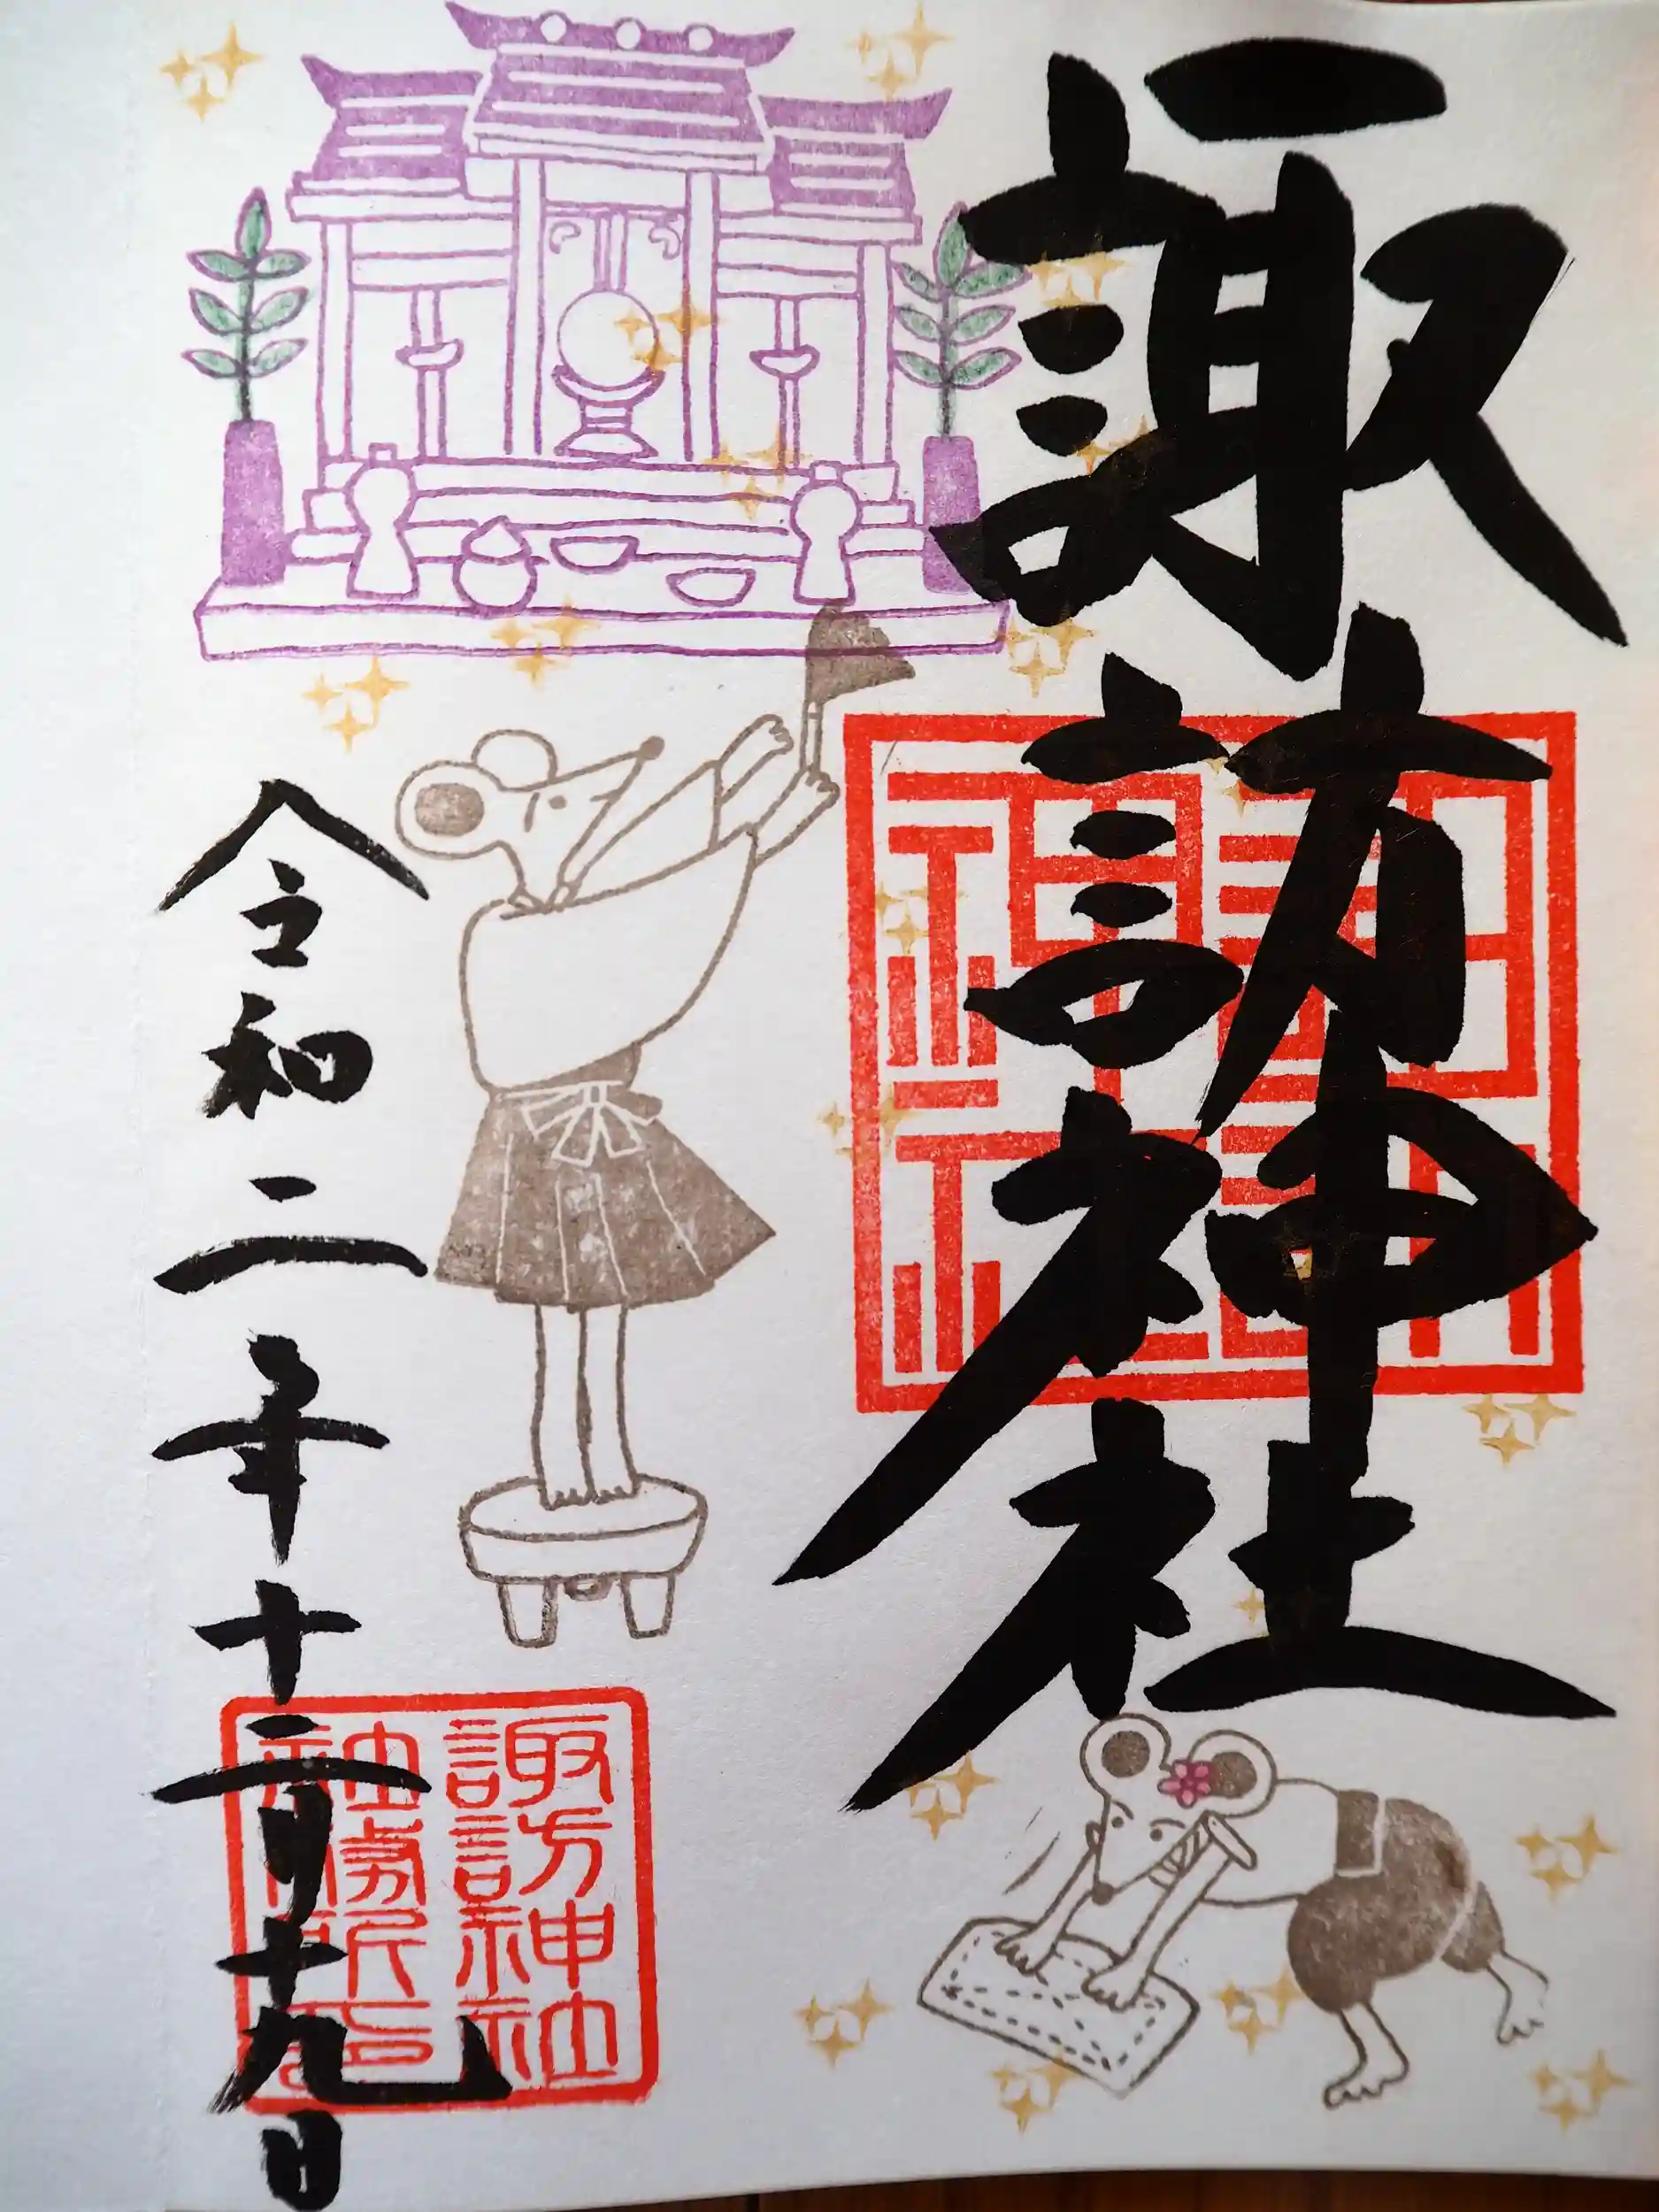 諏訪神社
諏訪
神社
令和二年十二月十九日
諏訪神社
社務所印